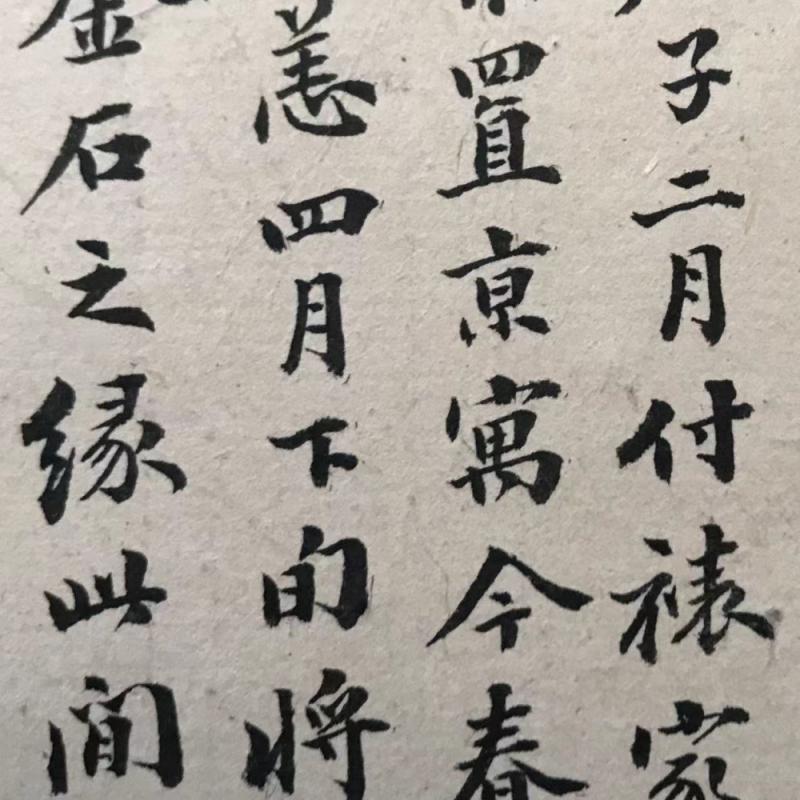 子二月付裱家
置京寓今春
恙四月下旬將
金石之緣此間